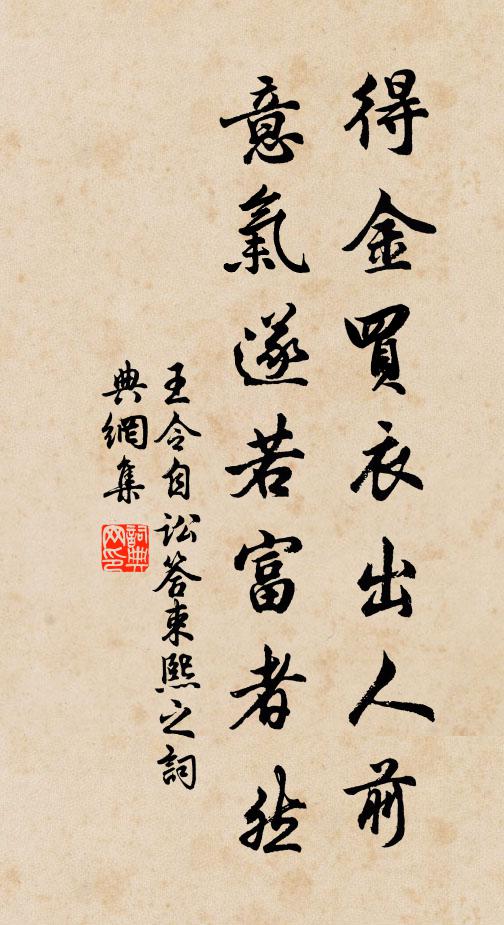 得金買衣出人前
意氣遂若富者然
王令自訟答束熙之詞
典網集
詞典網印